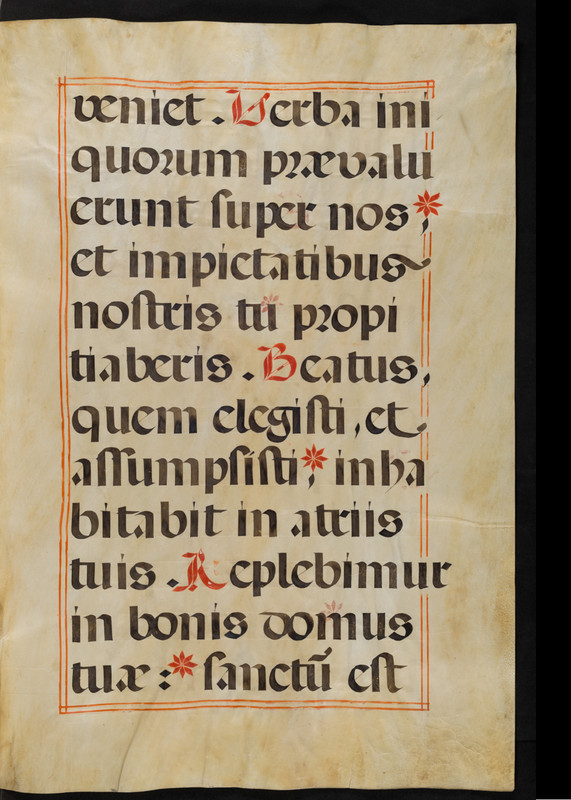 veniet. Verba ini
quorum prævalu
erunt ſuper nos,*
et impietatibus
noſtris tu propi
tiaberis. Beatus,
quem elegiſti, et
aſſumpſiſti,* inha
bitabit in atriis
tuis. Replebimur
in bonis domus
tuæ:* ſanctū eſt